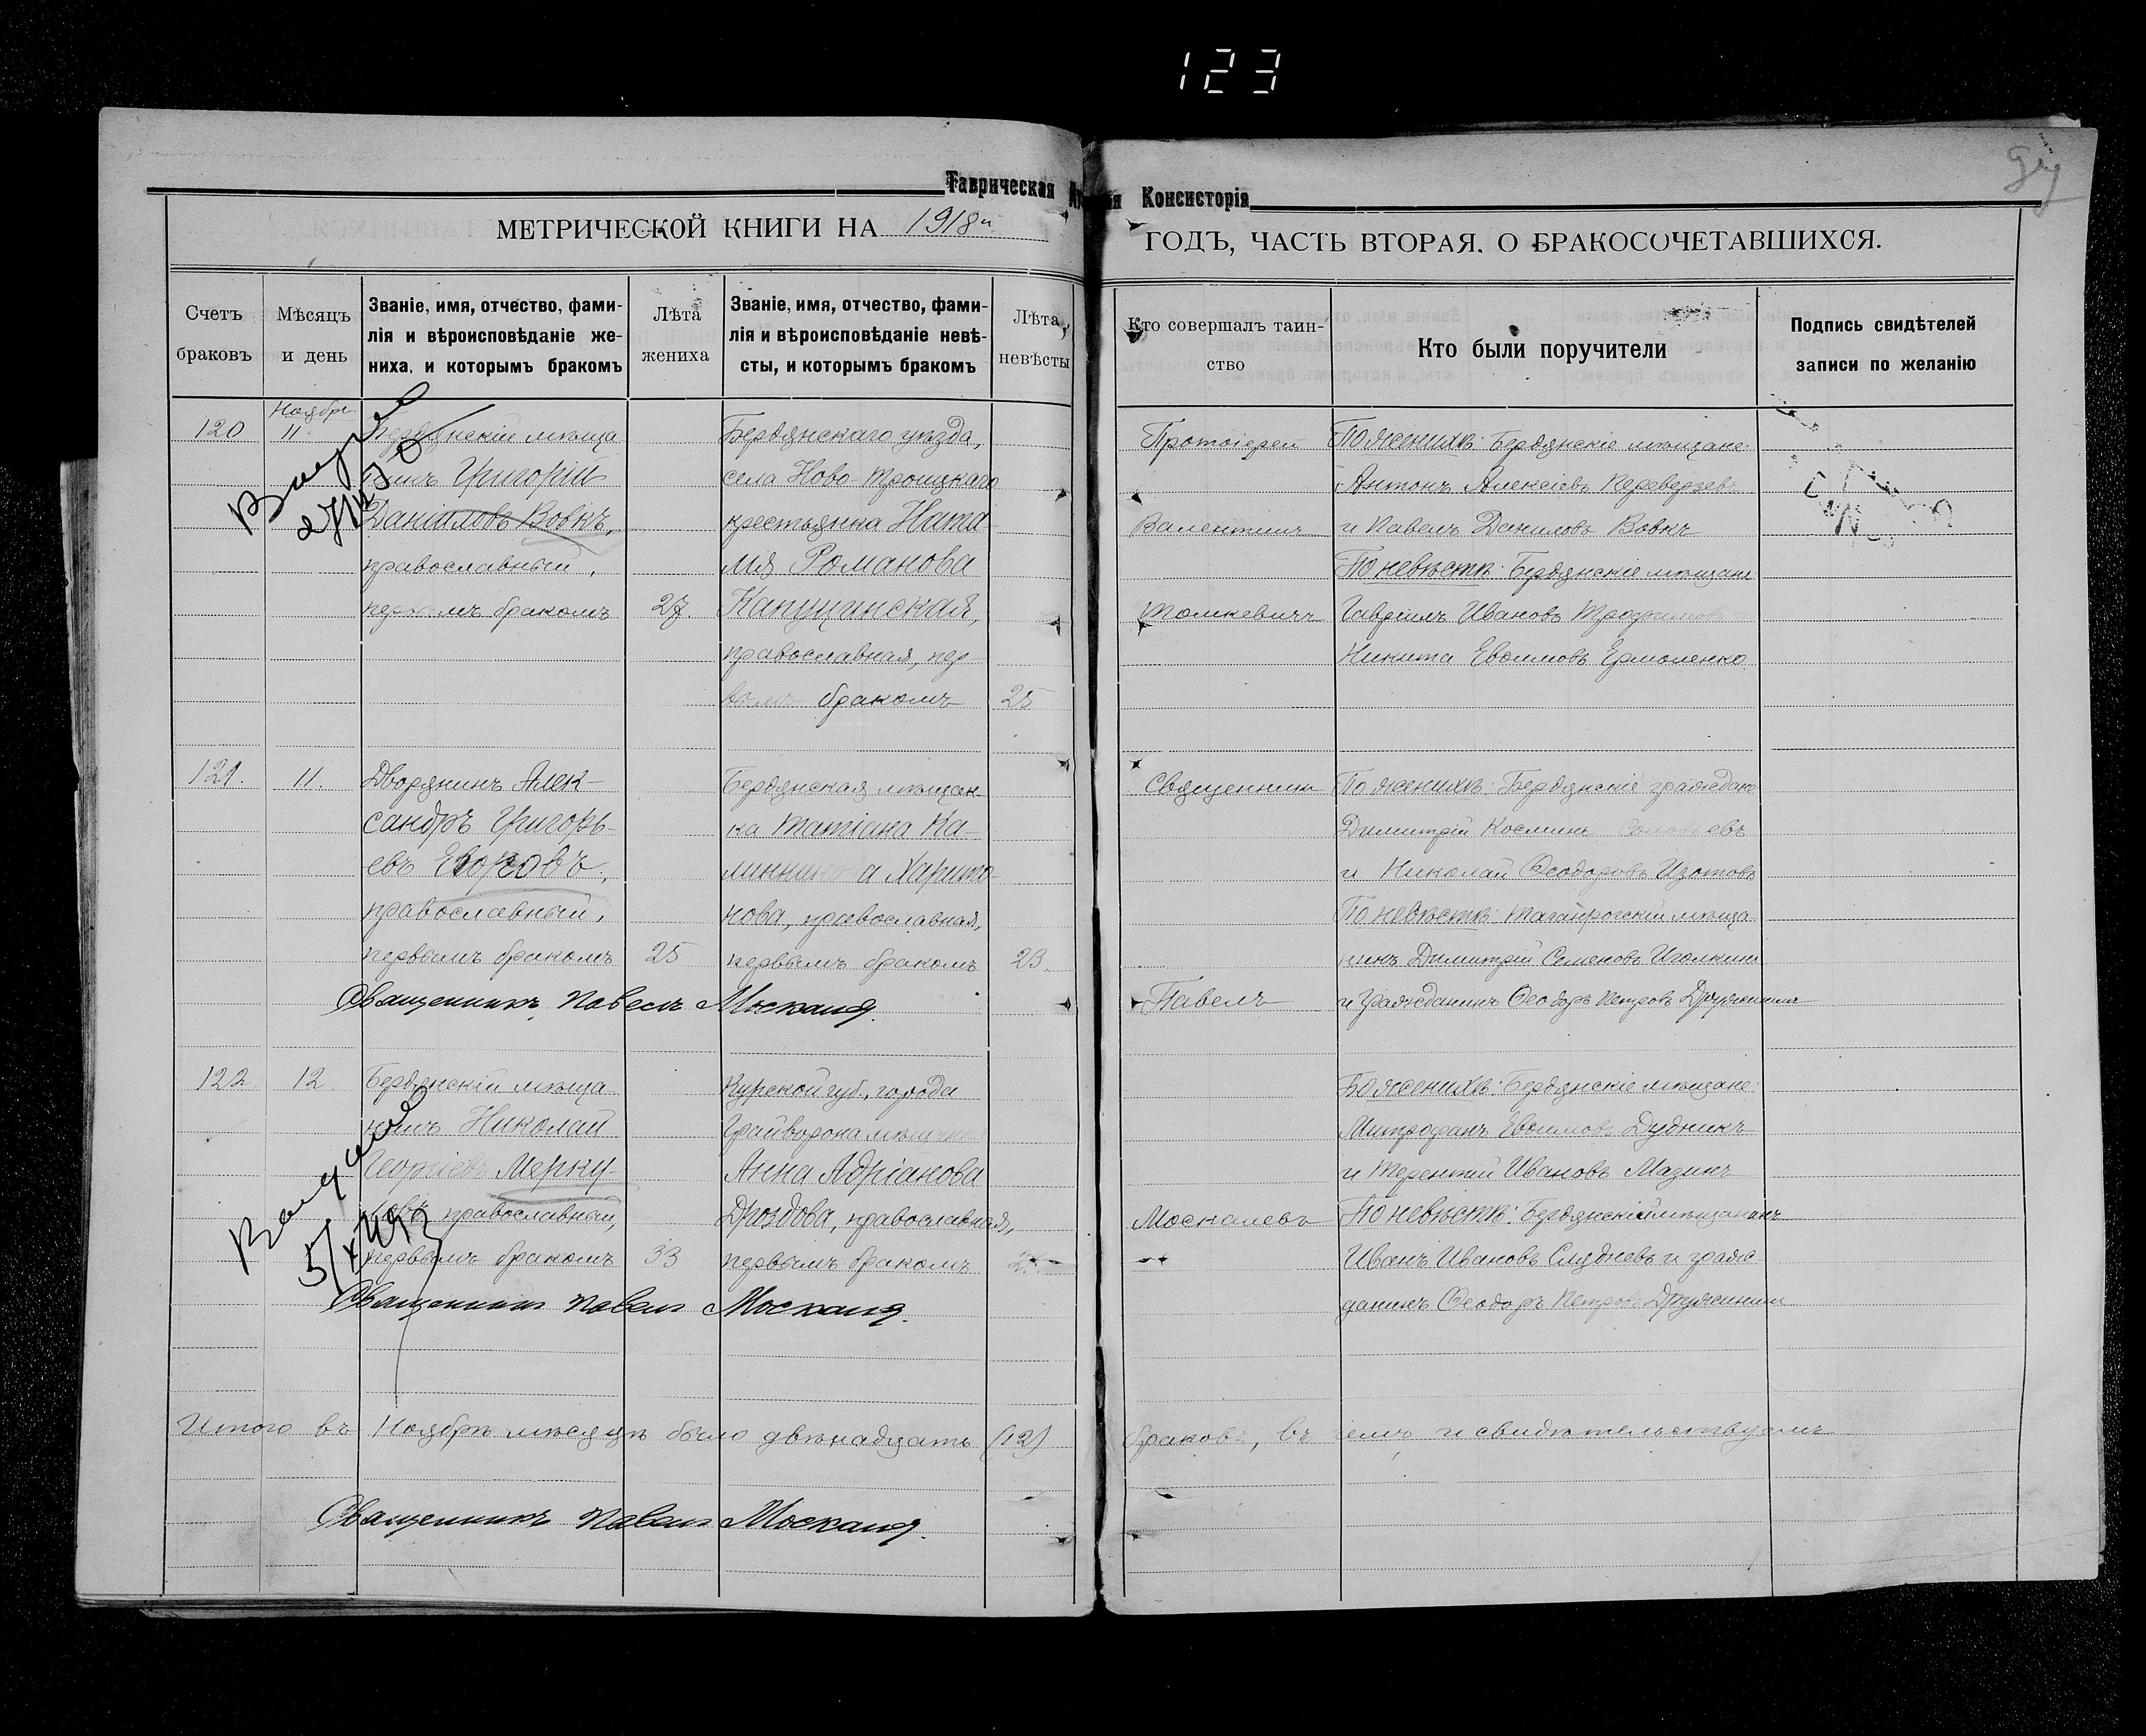 123
Таврическая
Консисторія
МЕТРИЧЕСКОЙ КНИГИ НА 1918й
ГОДЪ, ЧАСТЬ ВТОРАЯ. О БРАКОСОЧЕТАВШИХСЯ.
Счетъ браковъ
Мѣсяцъ и день
Званіе, имя, отчество, фами-
лія и вѣроисповѣданіе же-
ниха, и которымъ бракомъ
Лѣта жениха
Званіе, имя, отчество, фами-
лія и вѣроисповѣданіе невѣ-
сты, и которымъ бракомъ
Лѣта невѣсты
Кто совершалъ таин-
ство
Кто были поручители
Подпись свидѣтелей
записи по желанію
120
Ноябрь
11.
Бердянскій мѣща-
нинъ Григорій
Даніиловъ Вовкъ,
православный,
первымъ бракомъ
27.
Бердянскаго уѣзда,
села Ново-Троицкаго
крестьянка Ната-
лія Романова
Капущинская,
православная, пер-
вымъ бракомъ
25
Протоіерей
Валентинъ
Томкевичъ
По женихѣ: Бердянскіе мѣщане:
Антонъ Алексіевъ Переверзевъ
и Павелъ Даниловъ Вовкъ
По невѣстѣ: Бердянскіе мѣщане
Гавріилъ Ивановъ
Никита Евѳимовъ Ермоленко
121.
11.
Дворянинъ Алек-
сандръ Григорь-
евъ
православный,
первымъ бракомъ
25
Бердянская мѣщан-
ка Татіана Ка-
а Харито-
нова, православная,
первымъ бракомъ
23.
Священникъ Павелъ
Священникъ
Павелъ
Москалевъ
По женихѣ: Бердянскіе граждане
Димитрій Косминъ
и Николай Ѳеодоровъ Изотовъ
По невѣстѣ: Таганрогскій мѣща-
нинъ Димитрій Семеновъ Иголкинъ
и гражданинъ Ѳеодоръ Петровъ Дружининъ
122
12
Бердянскій мѣща-
нинъ Николай
Георгіевъ Мерку-
ловъ, православный,
первымъ бракомъ
33
Курской губ., города
Грайворона мѣщанка
Анна Адріанова
Дроздова, православная,
первымъ бракомъ
Священникъ Павелъ
По женихѣ: Бердянскіе мѣщане:
Митрофанъ Евѳимовъ Дудникъ
и Терентій Ивановъ Мазинъ
По невѣстѣ: Бердянскій мѣщанинъ
Иванъ Ивановъ Слуднев и граж-
данинъ Ѳеодоръ Петровъ Дружининъ
Итого въ Ноябрѣ мѣсяцѣ было двѣнадцать (12) браковъ, въ чемъ и свидѣтельствуемъ
Священникъ Павелъ